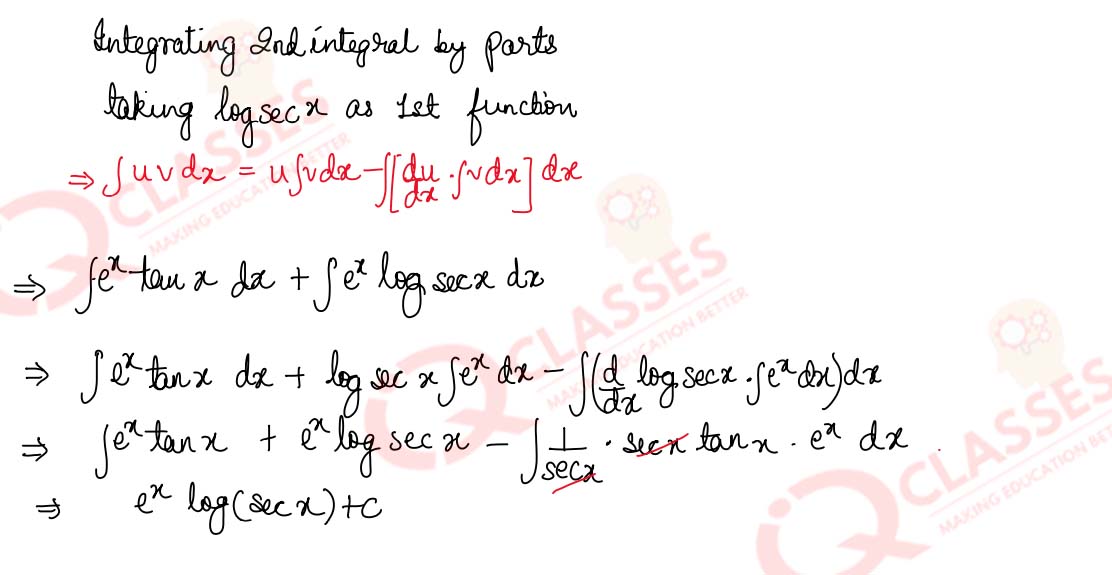 Integrating 2nd integral by parts
taking log sec x as 1st function
⇒ ∫ u v dx = u ∫v dx - ∫[du/dx · ∫v dx] dx
⇒ ∫eˣ tan x dx + ∫eˣ log sec x dx
⇒ ∫eˣ tan x dx + log sec x ∫eˣ dx - ∫(d/dx log sec x · ∫eˣ dx) dx
⇒ ∫eˣ tan x + eˣ log sec x - ∫ 1/sec x · sec x tan x · eˣ dx
⇒ eˣ log(sec x) + C
CLASSES
MAKING EDUCATION BETTER
CLASSES
MAKING EDUCATION BETTER
CLASSES
MAKING EDUCATION BETTER